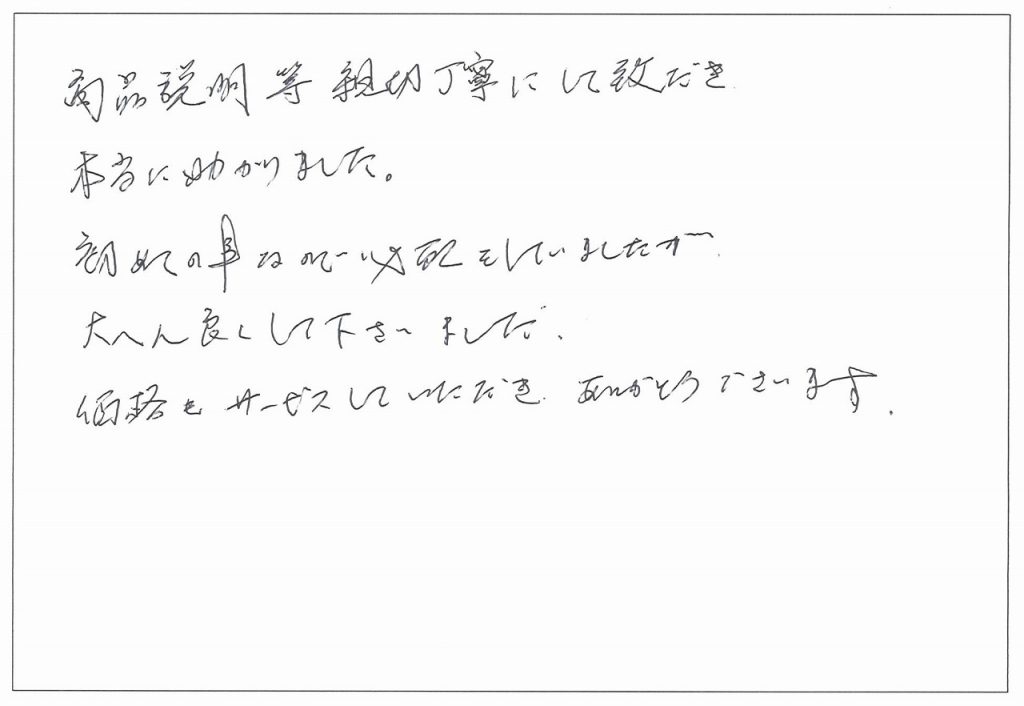 商品説明等親切丁寧にして致だき
本当に助かりました。
初めての事なので心配をしていましたが
大へん良くして下さいました、
価格もサービスしていただき ありがとうございます.